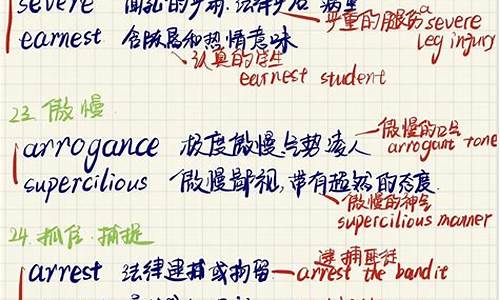 severe
严重的腿伤 a severe leg injury
earnest
认真的学生
earnest student
23. 傲慢
arrogance 极度傲慢、气势凌人
傲慢的口气
arrogant tone
supercilious 傲慢鄙视,带有超然的态度.
傲慢的神气
supercilious manner
24. 抓住.捕捉
arrest 法律逮捕或拘留
逮捕匪徒
arrest the bandit